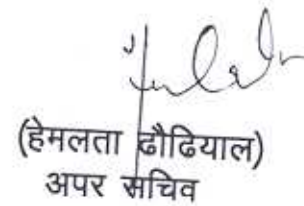 (हेमलता ढौढियाल)
अपर सचिव